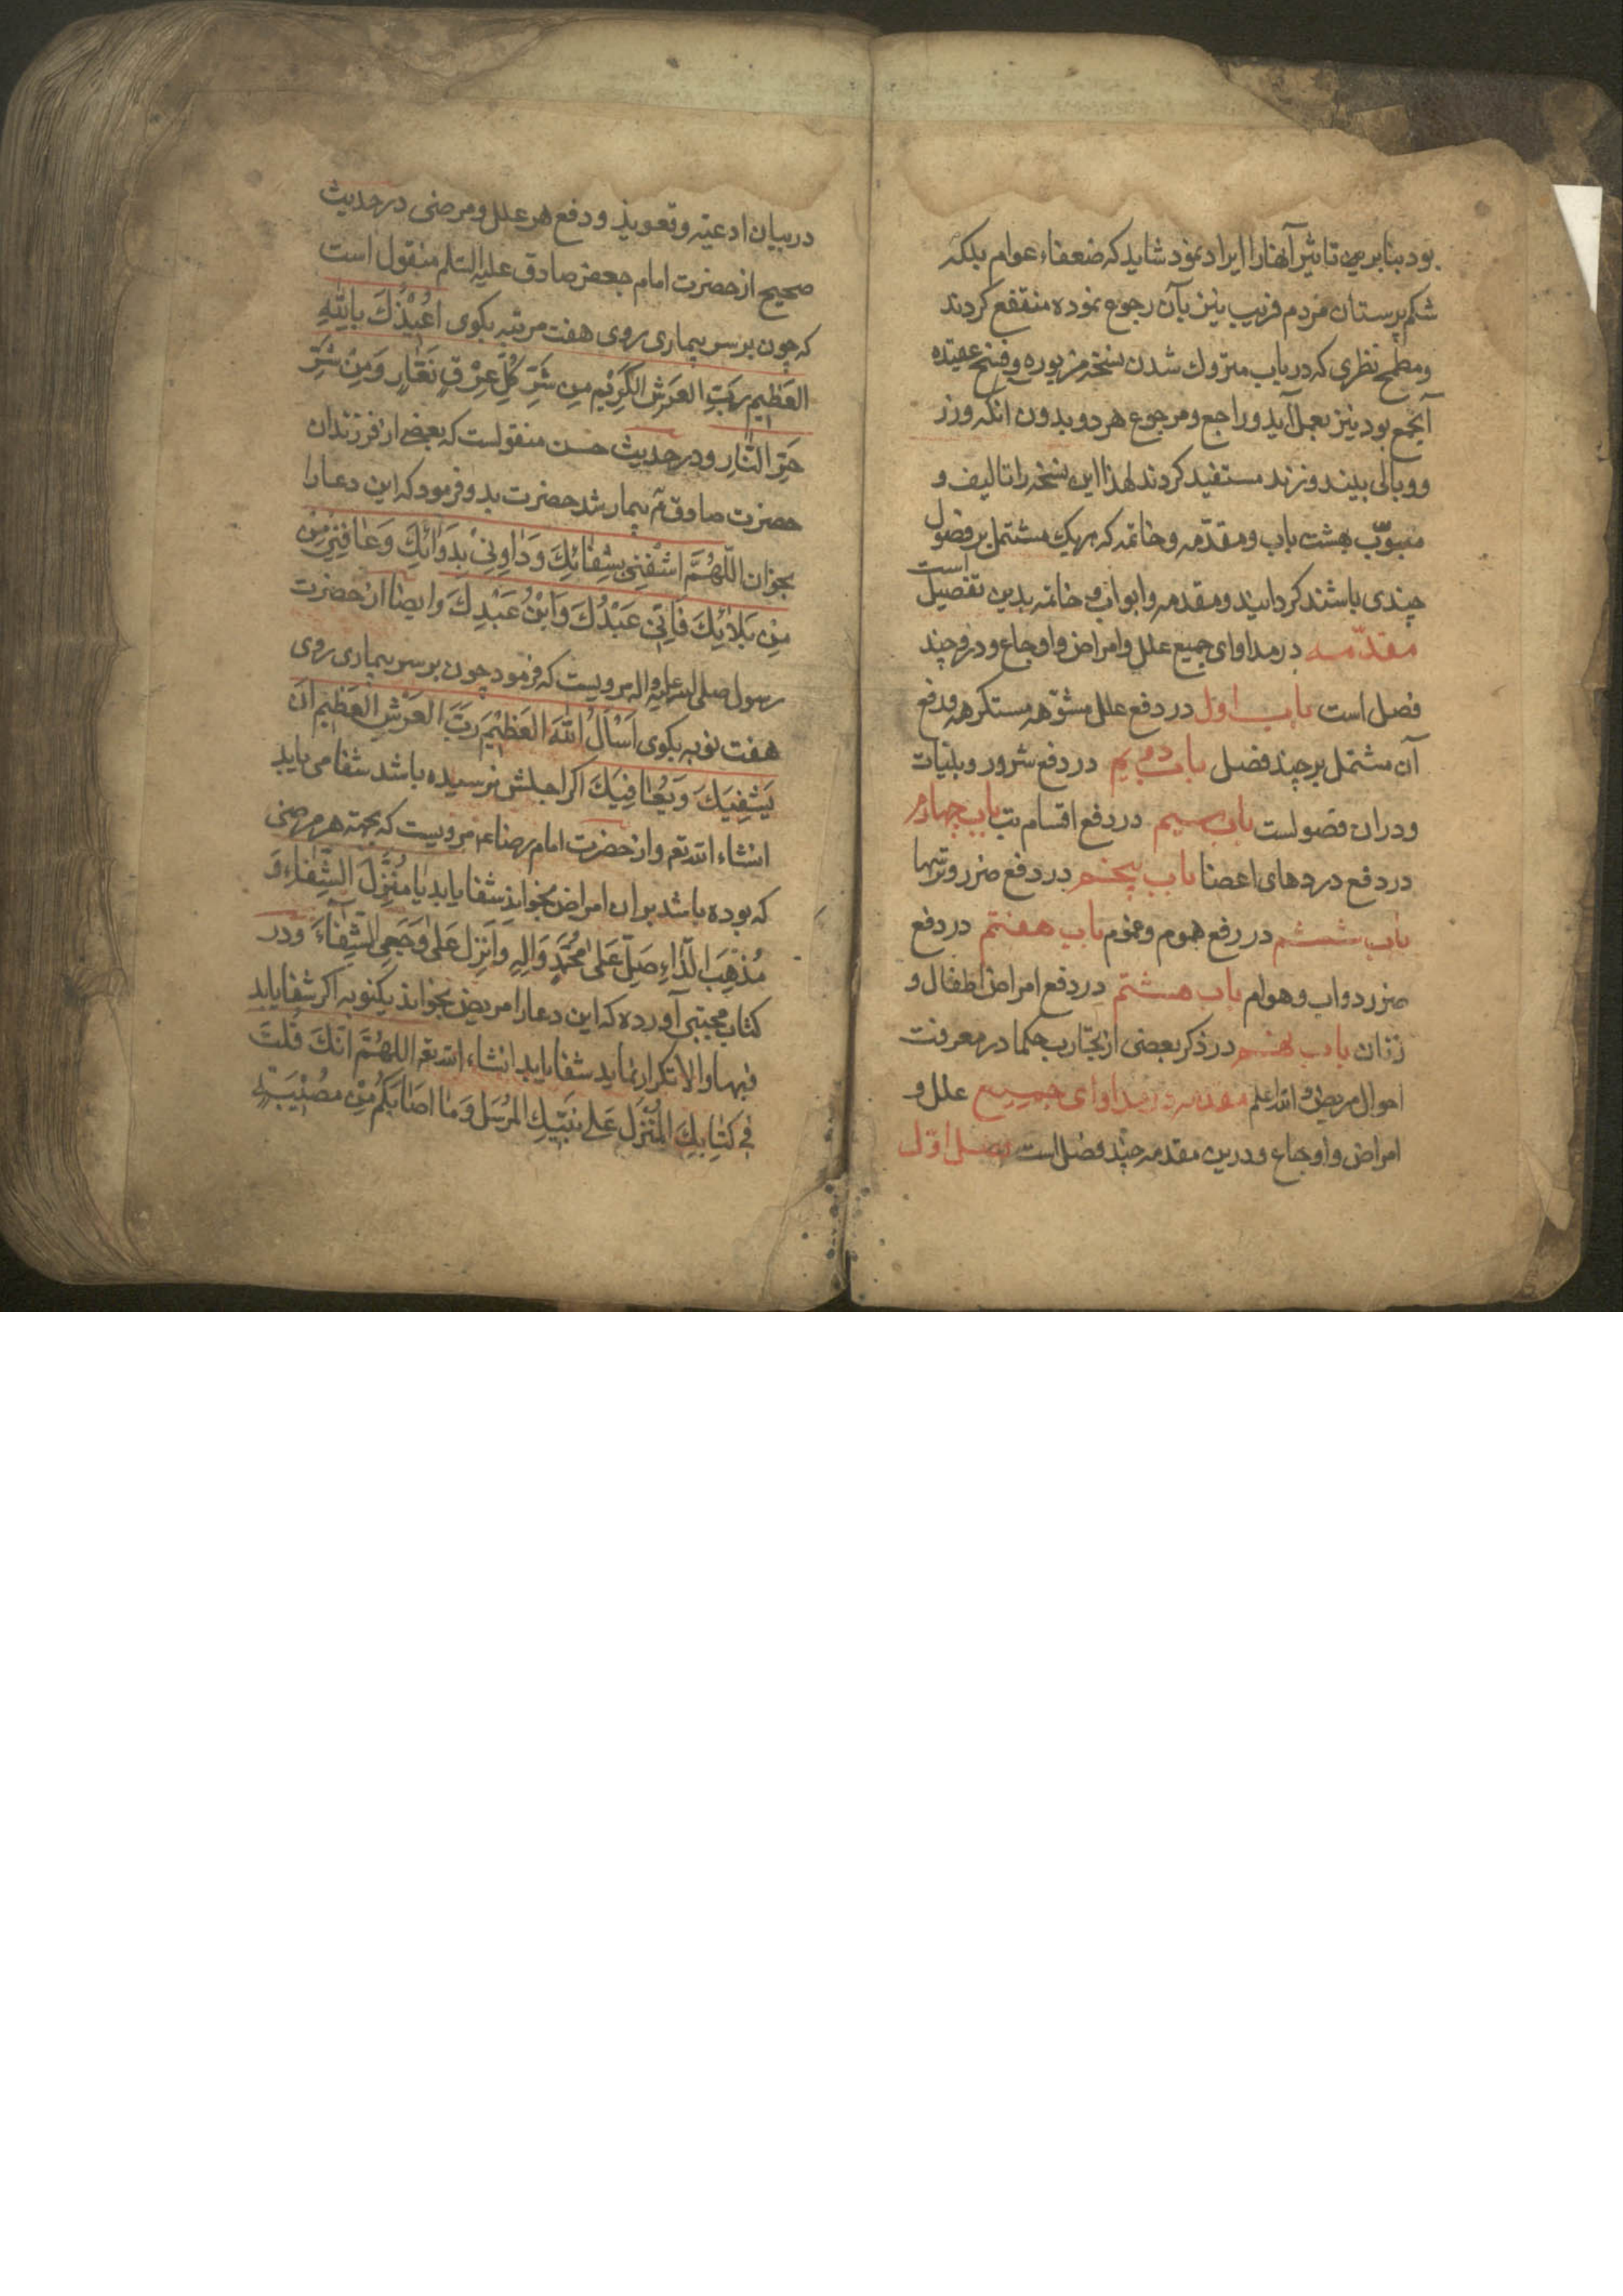 بود بنابرین تاثیر آنهارا ایراد نمود شاید که ضعفاء عوام بلکه
شکم پرستان مردم فریب نیز بآن رجوع نموده منتفع کردند
ومطمح نظری که در باب متروک شدن نسخه مزبوره وفسخ عقیده
آنجمع بود نیز بعمل آید وراجع ومرجوع هر دو بدون انکه وزر
ووبالی بینند وزرند مستفید کردند لهذا این نسخه را تالیف و
مبوّب بهشت باب ومقدّمه وخاتمه که هریک مشتمل بر فصول
چندی باشند کردانید ومقدمه وابواب وخاتمه بدین تفصیل است
مقدّمه در مداوای جمیع علل وامراض واوجاع ودرو چند
فصل است باب اول در دفع علل مشوّهه مستکرهه ودفع
آن مشتمل بر چند فصل باب دویم در دفع شرور وبلیات
ودران فصولست باب سیم در دفع اقسام تب باب چهارم
در دفع دردهای اعضا باب پنجم در دفع ضرر
باب ششم در رفع هموم وغموم باب هفتم در دفع
ضرر دواب وهوام باب هشتم در دفع امراض اطفال و
زنان باب نهم در ذکر بعضی از تجارب حکما در معرفت
احوال مریض والله اعلم مقدمه در مداوای جمیع علل و
امراض واوجاع ودرین مقدمه چند فصل است فصل اوّل
در بیان ادعیه وتعویذ ودفع هر علل ومرضی در حدیث
صحیح از حضرت امام جعفر صادق علیه السّلم منقول است
که چون بر سر بیماری روی هفت مرتبه بکوی اُعیْذُکَ بِاللّٰهِ
العَظیمِ رَبِّ العَرشِ الکَرِیْمِ مِن شَرِّ کُلِّ عِرْقٍ نَعّارٍ وَمِنْ شَرِّ
حَرِّ النّارِ ودر حدیث حسن منقولست که بعضی از فرزندان
حضرت صادق ع بیمار شد حضرت بدو فرمود که این دعارا
بخوان اللّهُمَّ اشْفِنِی بِشِفائِکَ وَدَاوِنِیْ بِدَوَائِکَ وَعَافِنِیْ
مِن بَلائِکَ فَاِنّی عَبْدُکَ وَابْنُ عَبْدِکَ وایضا از حضرت
رسول صلی الله علیه واله مرویست که فرمود چون بر سر بیماری روی
هفت نوبه بکوی اَسْأَلُ اللّٰهَ العَظِیْمَ رَبَّ العَرْشِ العَظِیمِ اَنْ
یَشْفِیَکَ وَیُعٰافِیَکَ اکر اجلش نرسیده باشد شفا می یابد
انشاء الله تع واز حضرت امام رضا ع مرویست که بجهته هر مرضی
که بوده باشد بران امراض بخواند شفا یابد یا مُنَزِّلَ الشِّفٰاءِ وَ
مُذْهِبَ الدّاءِ صَلّ عَلیٰ مُحَمَّدٍ وَالِهِ وَاَنزِل عَلیٰ وَجَعِی الشِّفٰاءَ ودر
کتاب مجتبی آورده که این دعارا مریض بخواند یکنوبه اکر شفا یابد
فبها والا تکرار نماید شفا یابد انشاء الله تع اللهُمَّ اِنَّکَ قُلتَ
فِی کِتَابِکَ المُنْزَل عَلیٰ نَبِیِّکَ المُرْسَل وَمٰا اَصٰابَکُمْ مِنْ مُصِیْبَةٍ